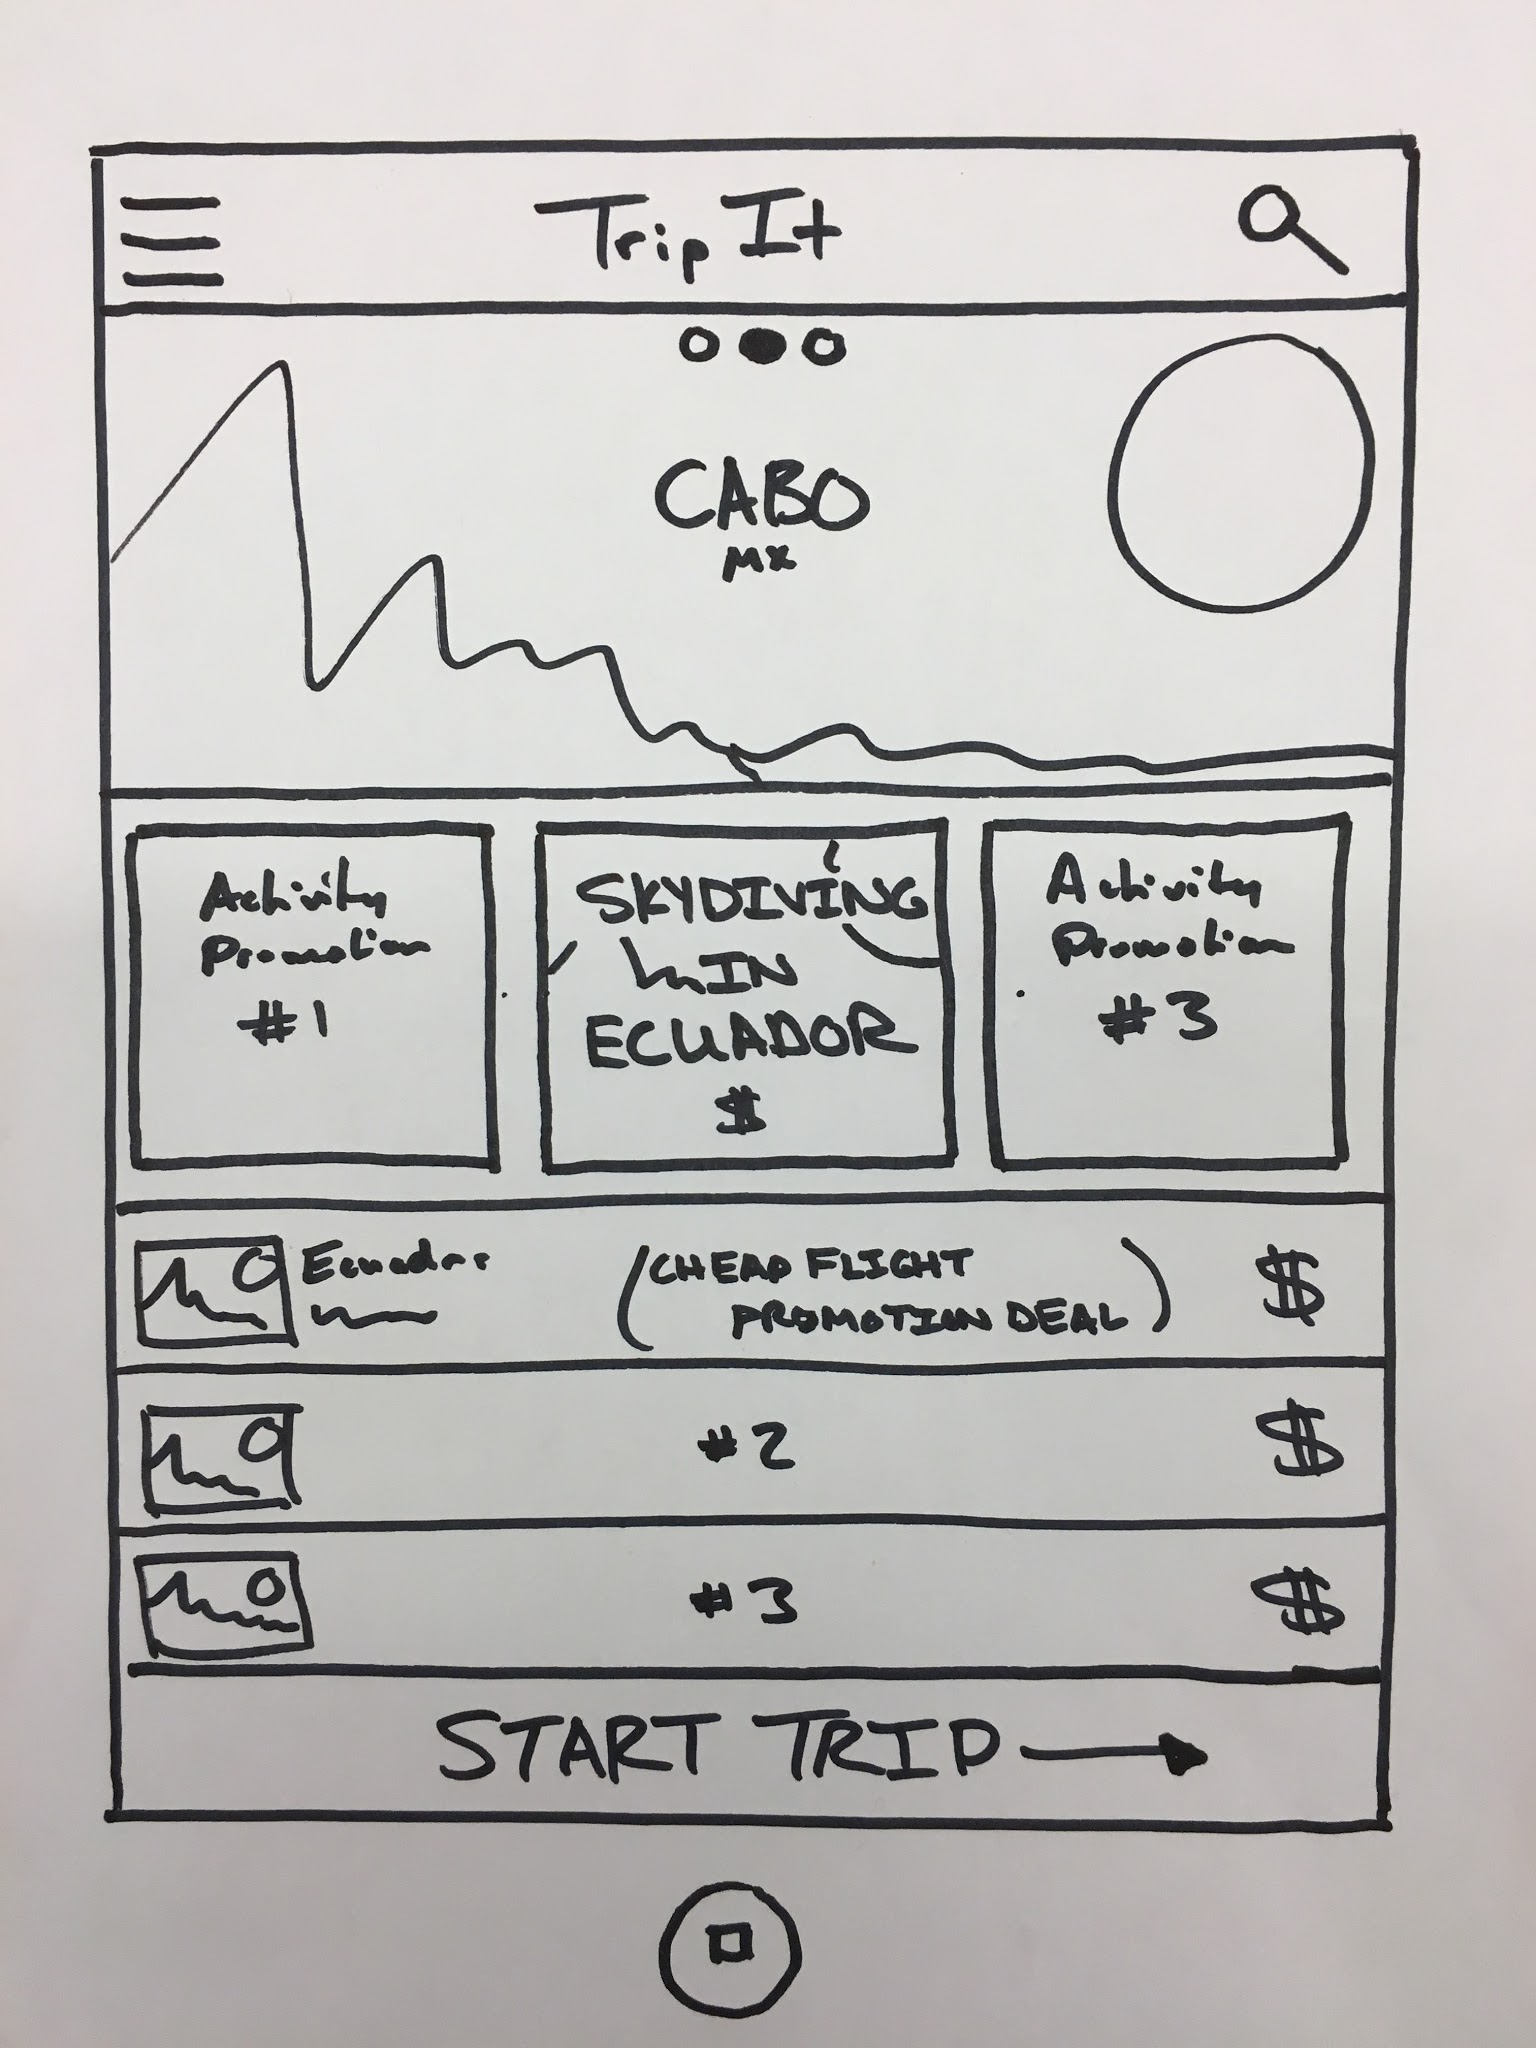 Trip It
CABO
MX
Activity
Promotion
#1
SKYDIVING
IN
ECUADOR
$
Activity
Promotion
#3
Ecuador
(CHEAP FLIGHT
PROMOTION DEAL)
$
#2
$
#3
$
START TRIP